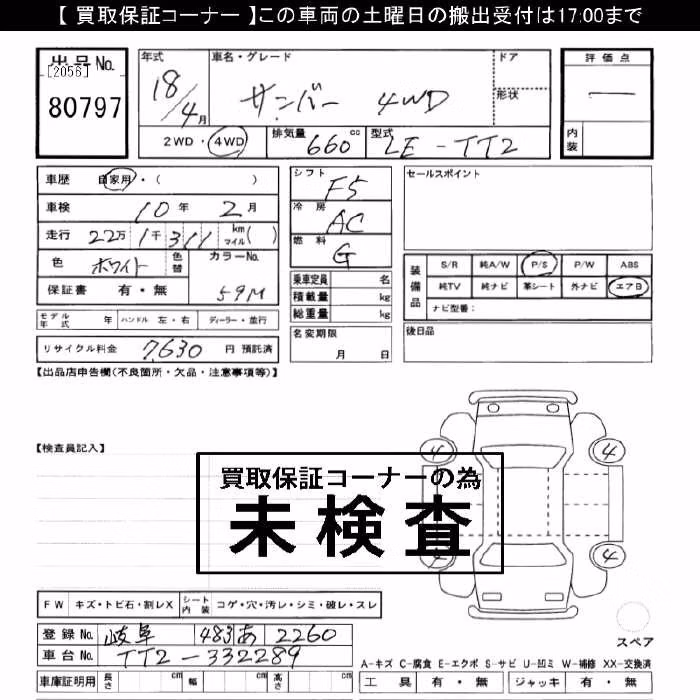 【 買取保証コーナー 】この車両の土曜日の搬出受付は17:00まで
出品No. [2056] 80797
年式 18/4月
車名・グレード サンバー 4WD
ドア
形状
評価点 —
内装
2WD・4WD 排気量 660 cc 型式 LE-TT2
車歴 自家用・( )
車検 10年 2月
走行 22万 1千 311 km マイル( )
色 ホワイト 色替 カラーNo. 59M
保証書 有・無
シフト F5
冷房 AC
燃料 G
乗車定員 名
積載量 kg
総重量 kg
セールスポイント
装備品 S/R 純A/W P/S P/W ABS
純TV 純ナビ 革シート 外ナビ エアB
ナビ型番:
モデル年式 年 ハンドル 左・右 ディーラー・並行
名変期限 月 日
後日品
リサイクル料金 7,630 円 預託済
【出品店申告欄(不良箇所・欠品・注意事項等)】
【検査員記入】
買取保証コーナーの為
未検査
4 4
4 4
FW キズ・トビ石・割レX シート内装 コゲ・穴・汚レ・シミ・破レ・スレ
スペア
登録No. 岐阜 483 あ 2260
車台No. TT2-332289
A-キズ C-腐食 E-エクボ S-サビ U-凹ミ W-補修 XX-交換済
車庫証明用 長さ cm 幅 cm 高さ cm
工具 有・無 ジャッキ 有・無